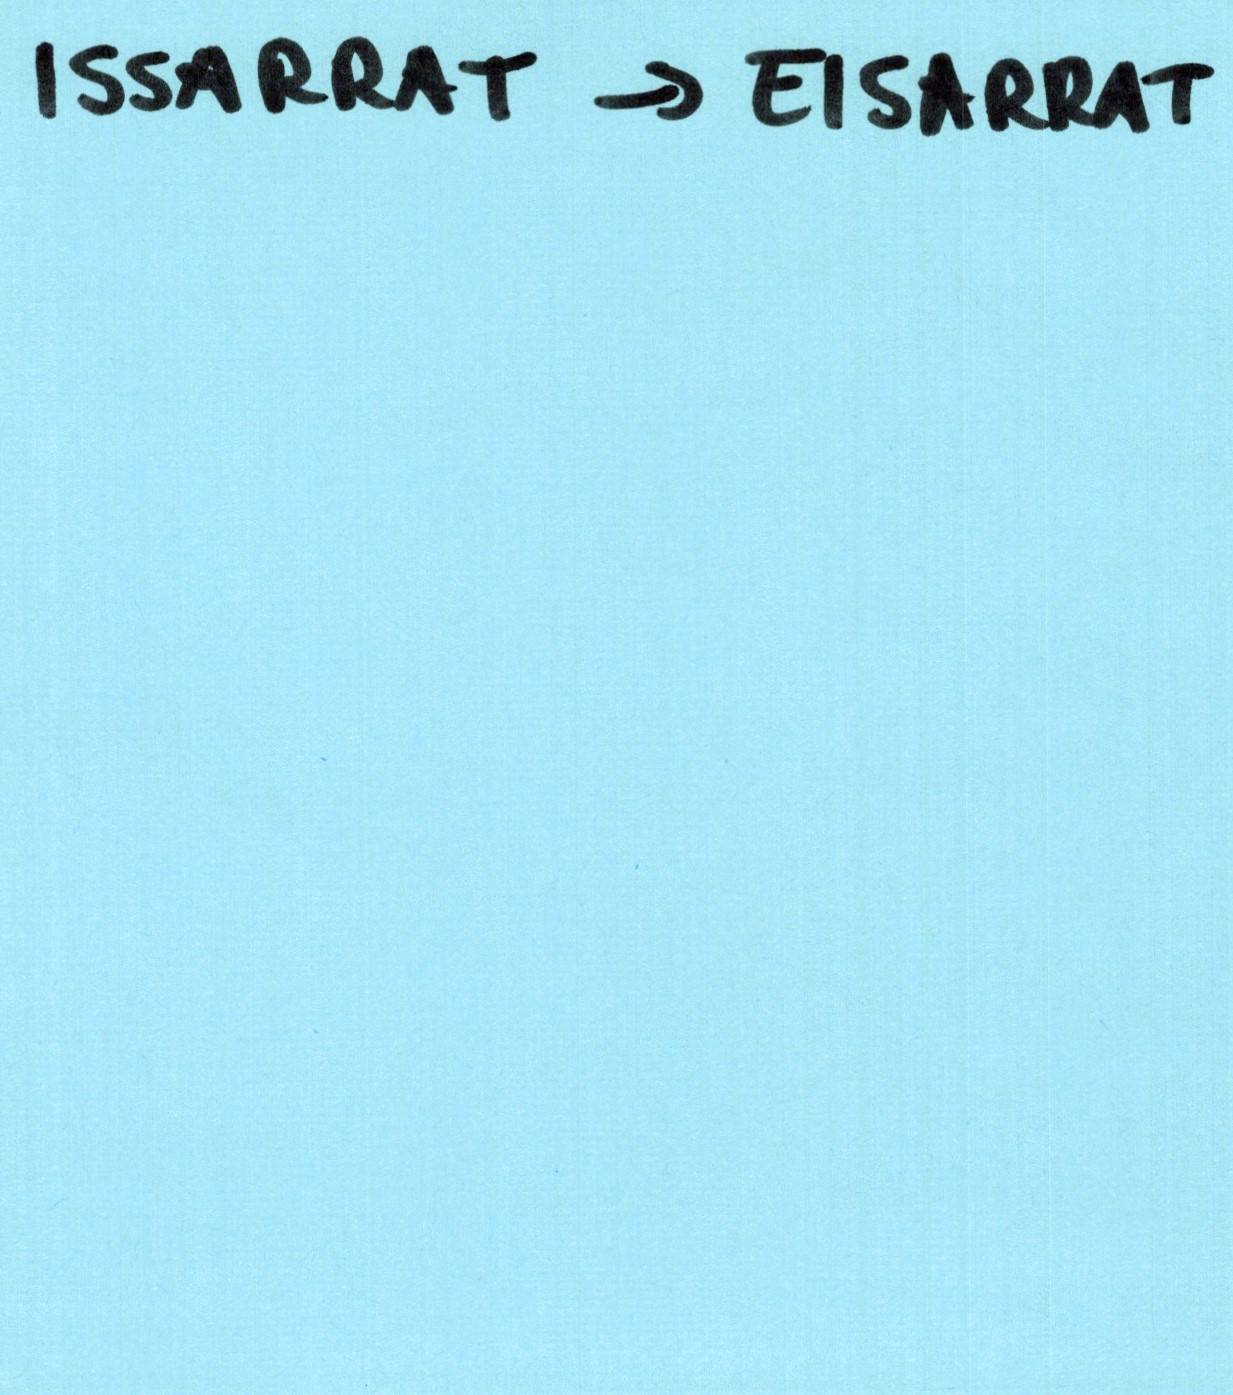 ISSARRAT → EISARRAT